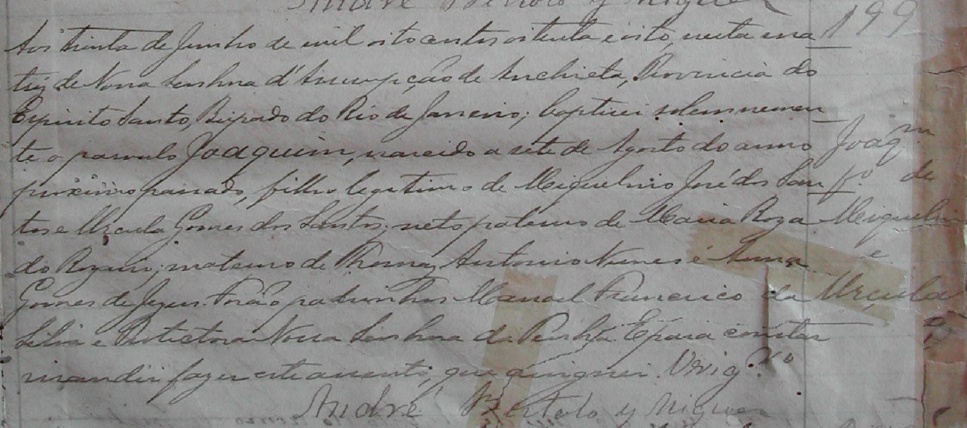 André Bertolo y Miguez
Aos trinta de Junho de mil oito centos oitenta e oito, nesta ma
triz de Nossa Senhora d'Assumpção de Anchieta, Provincia do
Espirito Santo, Bispado do Rio de Janeiro; baptisei solemnemen
te o parvulo Joaquim, nascido a sete de Agosto do anno
proximo passado, filho legitimo de Miguelino José dos San
tos e Urcula Gomes dos Santos; neto paterno de Maria Roza
do Rozario; materno de Thomaz Antonio Nunes e Anna
Gomes de Jezus. Forão padrinhos Manoel Francisco da
Silva e Protectora Nossa Senhora da Penha. E para constar
mandei fazer este assento, que assignei. O Vig.ro
André Bertolo y Miguez
199
Joaq.m
f.o de
Miguelino
e
Urcula